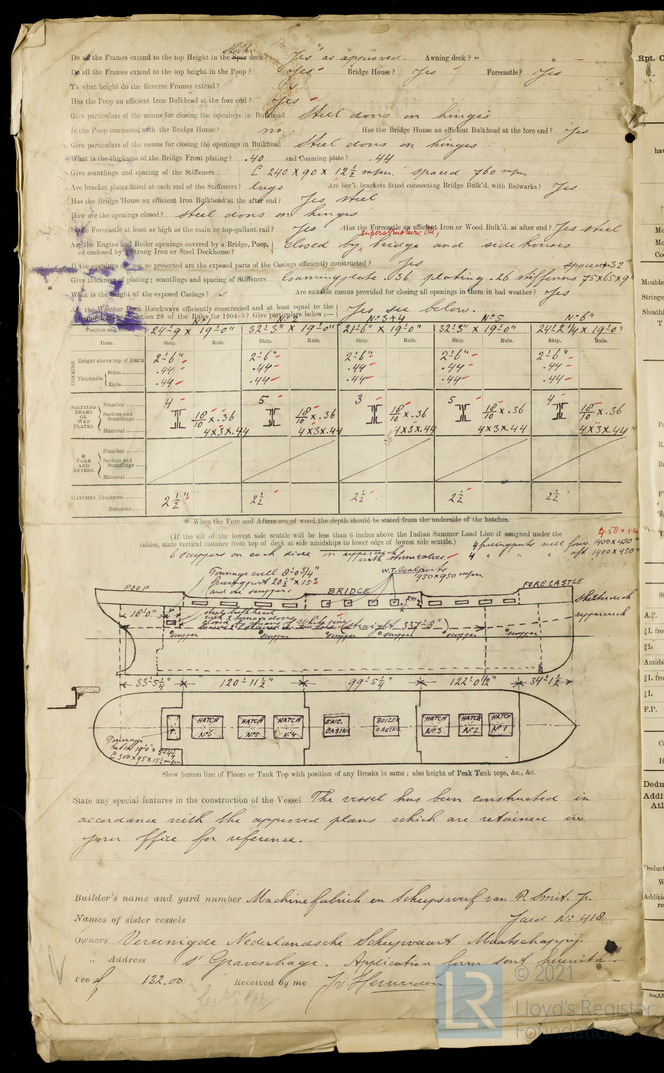 Do all the Frames extend to the top Height in the Shelter deck? Yes as approved. Awning deck?
Do all the Frames extend to the top height in the Poop? Yes Bridge House? Yes Forecastle? Yes
To what height do the Reverse Frames extend?
Has the Poop an efficient Iron Bulkhead at the fore end? Yes
Give particulars of the means for closing the openings in Bulkhead Steel doors on hinges
Is the Poop connected with the Bridge House? no. Has the Bridge House an efficient Bulkhead at the fore end? Yes
Give particulars of the means for closing the openings in Bulkhead Steel doors on hinges
What is the thickness of the Bridge Front plating? .40 and Coaming plate? .44
Give scantlings and spacing of the Stiffeners [ 240 X 90 X 12½ m.pm. spaced 760 m.pm
Are bracket plates fitted at each end of the Stiffeners? lugs Are hor'l brackets fitted connecting Bridge Bulk'd. with Bulwarks? Yes
Has the Bridge House an efficient Iron Bulkhead at the after end? Yes steel
How are the openings closed? Steel doors on hinges
Is the Forecastle at least as high as the main or top-gallant rail? Yes Has the Forecastle an efficient Iron or Wood Bulk'd. at after end? Yes steel
Are the Engine and Boiler openings covered by a Bridge, Poop, or enclosed by Strong Iron or Steel Deckhouse? Closed by bridge and side houses
If the openings are not so protected are the exposed parts of the Casings efficiently constructed? Yes spaced 32"
Give thickness of plating; scantlings and spacing of Stiffeners Coamingplate .36 plating .26 stiffeners 75x65x9
What is the height of the exposed Casings? Are suitable means provided for closing all openings in them in bad weather? Yes
Are the Weather Deck Hatchways efficiently constructed and at least equal to the
Section 28 of the Rules for 1904-5? Give particulars below:— Yes see below.
No 1 No 2 No 3+4 No 5 No 6
Position and 24'-9 X 19'-0" 32'-3" X 19'-0" 21'-6" X 19'-0" 32'-3" X 19'-0" 24'-2¼ X 19'-0"
Item. Ship. Rule. Ship. Rule. Ship. Rule. Ship. Rule. Ship. Rule.
COAMING Height above top of DECK 2'-6" 2'-6" 2'-6" 2'-6" 2'-6"
Thickness Sides .44 .44 .44 .44 .44
Ends .44 .44 .44 .44 .44
SHIFTING BEAMS OR WEB PLATES Number 4 5 3 5 4
Section and Scantlings 18/10 x .36 18/10 x .36 18/10 x .36 18/10 x .36 18/10 x .36
Material 4X3X.44 4x3x.44 4x3x.44 4x3x.44 4x3x.44
* FORE AND AFTERS. Number
Section and Scantlings
Material
HATCHES Thickness 2½" 2½ 2½ 2½ 2½
Remarks
* When the Fore and Afters are of wood the depth should be stated from the underside of the hatches.
(If the sill of the lowest side scuttle will be less than 6 inches above the Indian Summer Load Line if assigned under the
tables, state vertical distance from top of deck at side amidships to lower edge of lowest side scuttle.)
6 scuppers on each side on upperdeck with stormvalves.
4 freeingports well forw. 1400x450
4 " " " aft 1400 x 450
Tonnage well 8'-0¾"
and one scupper
W.T. Coalports
950x950 mpm
POOP BRIDGE FORECASTLE
18'-0"
steel bulkhead
with 2 tonnage doors
(straight 337'-8")
scupper scupper scupper scupper scupper
Shelterdeck
upperdeck
33'-5¼" 120'-11½" 99'-5¼" 122'-0½" 34'-1½
T. HATCH No 6 HATCH No 5 HATCH No 4 ENG. CASING BOILER CASING HATCH No 3 HATCH No 2 HATCH No 1
Tonnage
hatch
Show hereon line of Floors or Tank Top with position of any Breaks in same; also height of Peak Tank tops, &c., &c.
State any special features in the construction of the Vessel The vessel has been constructed in
accordance with the approved plans which are retained in
your office for reference.
Builder's name and yard number Machinefabriek en Scheepswerf van P. Smit. Jr.
Names of sister vessels Yard No 418
Owners Vereenigde Nederlandsche Scheepvaart Maatschappij.
" Address s' Gravenhage. Application form sent herewith.
Fee £ 132.00 Received by me
© 2021
LR Lloyd's Register
Foundation
Rpt.